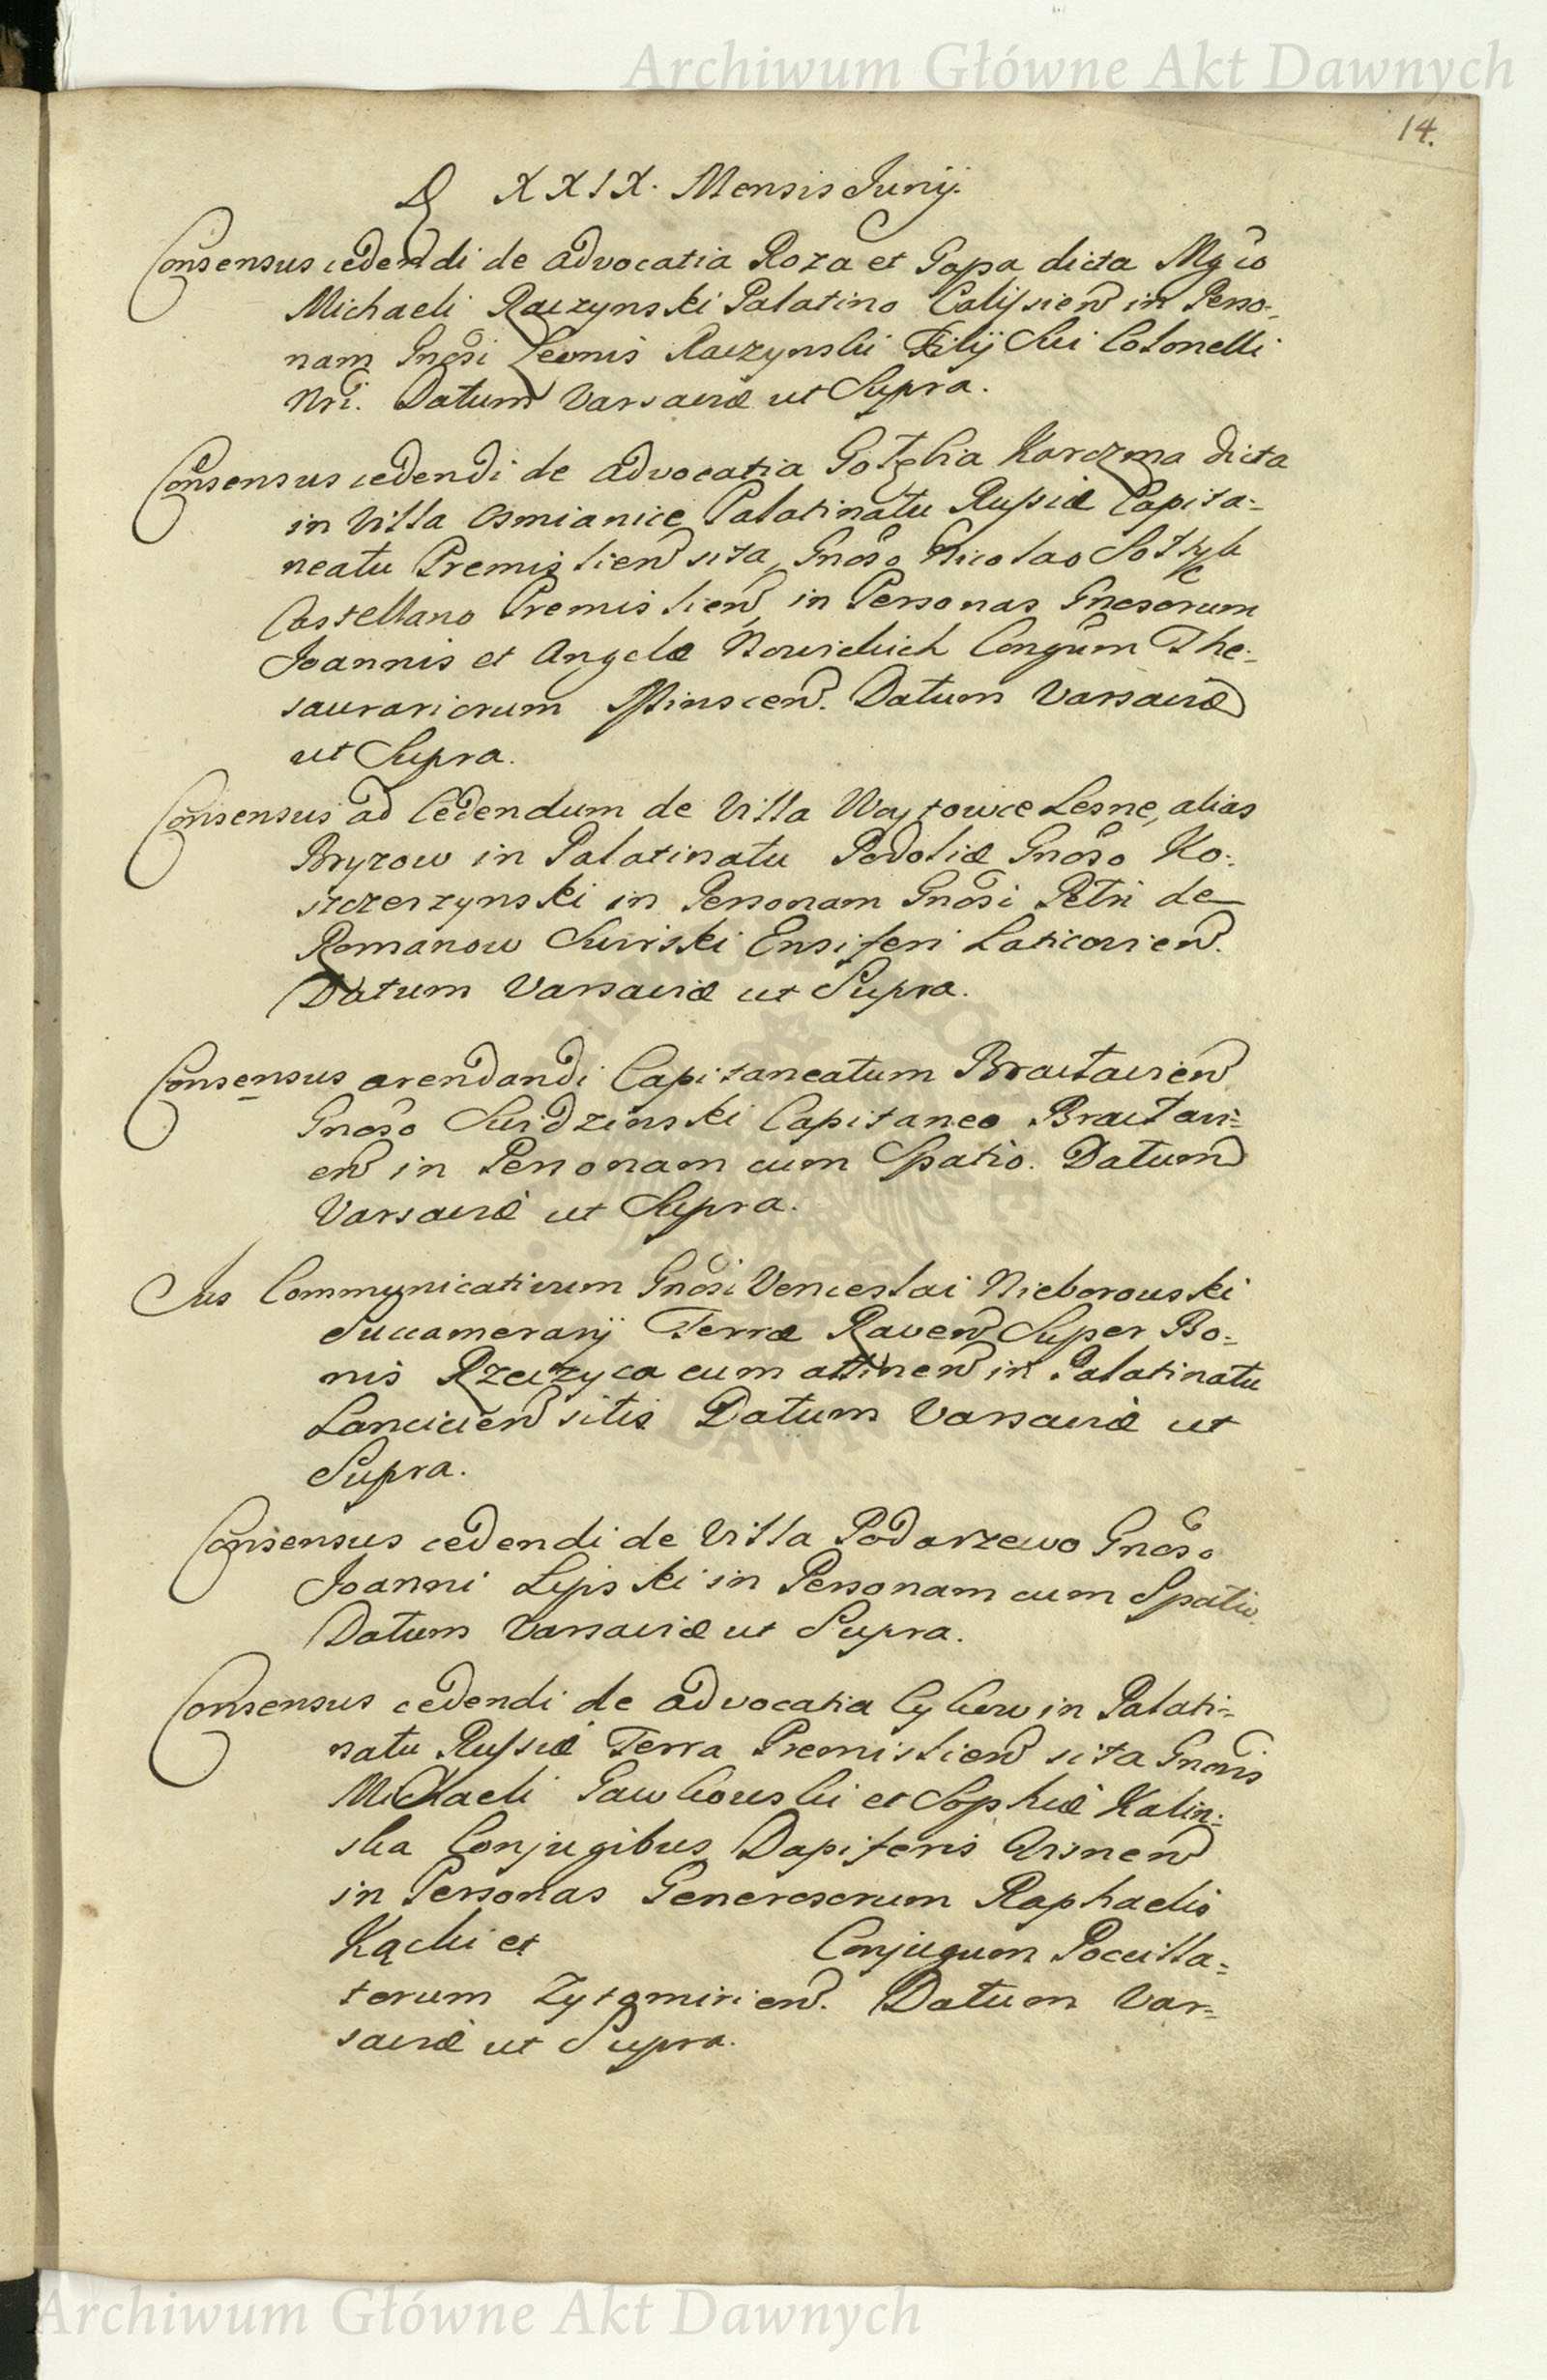 Archiwum Główne Akt Dawnych
14.
D XXIX. Mensis Junij.
Consensus cedendi de advocatia Roza et Gapa dicta Mgco
Michaeli Raczynski Palatino Calissien in Perso-
nam Gnosi Leonis Raczynski Filij Sui Colonelli
Nri. Datum Varsaviæ ut Supra.
Consensus cedendi de advocatia Karczma dicta
in Villa Osmianice Palatinatu Russiæ Capita-
neatu Premislien sita, Gnoso Nicolao Sołtyk
Castellano Premislien, in Personas Gnosorum
Joannis et Angelæ Nowickich Congum The-
saurariorum Pinscen. Datum Varsaviæ
ut Supra.
Consensus ad Cedendum de Villa Woytowce Lesne, alias
Bryzow in Palatinatu Podoliæ Gnoso Ko-
szczerzynski in Personam Gnosi Petri de
Romanow Swirski Ensiferi Laticovien.
Datum Varsaviæ ut Supra.
Consensus arendandi Capitaneatum Braclavien
Gnoso Swidzinski Capitaneo Braclavi-
en in Personam cum Spatio. Datum
Varsaviæ ut Supra.
Jus Communicativum Gnosi Venceslai Nieborowski
Succamerarij Terræ Raven Super Bo-
nis Rzeczyca cum attinen in Palatinatu
Lancicien sitis Datum Varsaviæ ut
Supra.
Consensus cedendi de Villa Podarzewo Gnoso
Joanni Lipski in Personam cum Spatio.
Datum Varsaviæ ut Supra.
Consensus cedendi de advocatia in Palati-
natu Russiæ Terra Premislien sita Gnosis
Michaeli Gawkowski et Sophiæ Kalin-
ska Conjugibus Dapiferis
in Personas Generosorum Raphaelis
Kącki et Conjugum Pocilla-
torum Zytomirien. Datum Var-
saviæ ut Supra.
Archiwum Główne Akt Dawnych